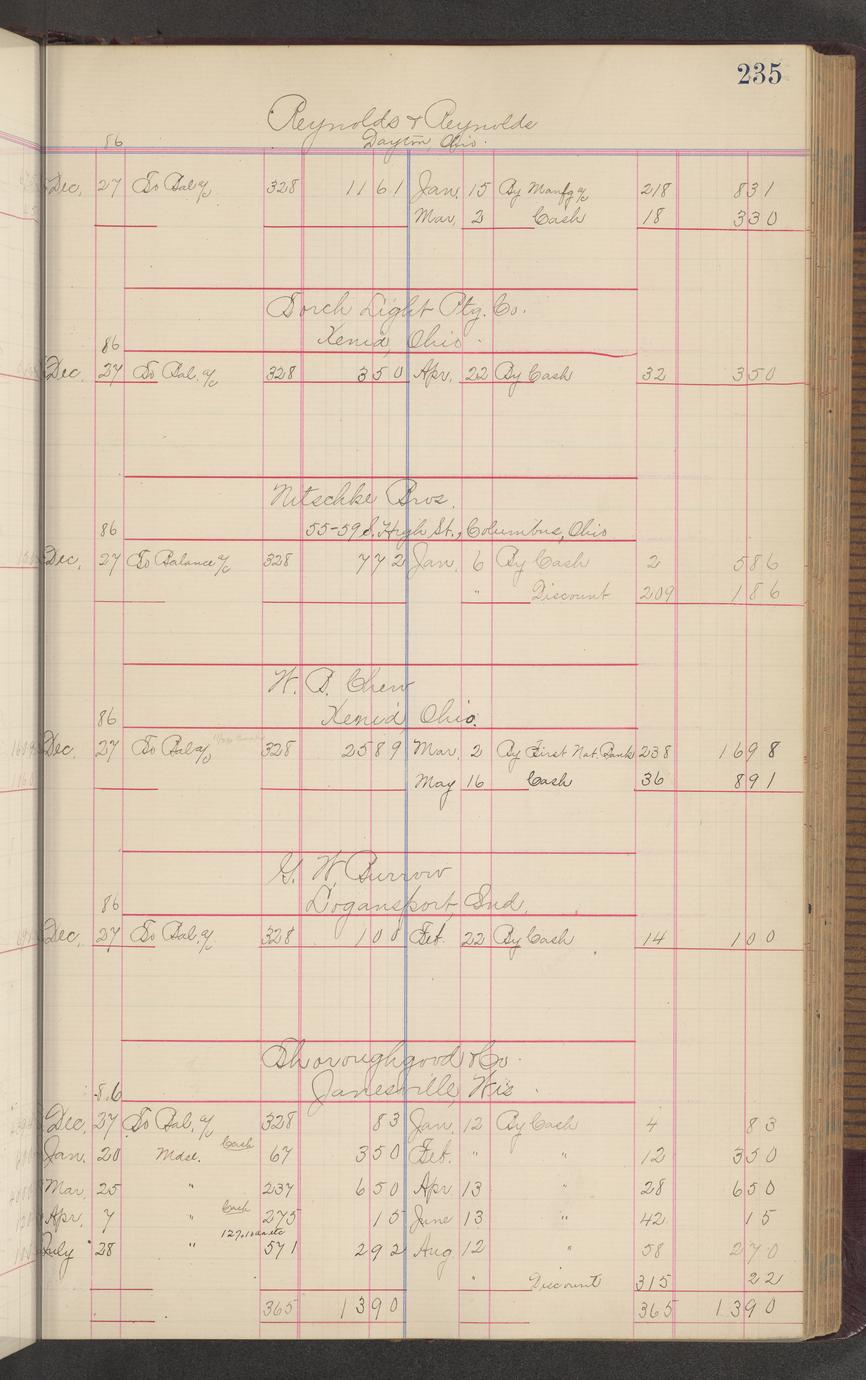 235
Reynolds & Reynolds
86 Dayton, Ohio.
Dec. 27 To Bal a/c 328 1161 Jan. 15 By Manfg a/c 218 831
Mar. 2 Cash 18 330
Torch Light Ptg. Co.
86 Xenia, Ohio.
Dec. 27 To Bal. a/c 328 350 Apr. 22 By Cash 32 350
Nitschke Bros.
86 55-59 S. High St., Columbus, Ohio
Dec. 27 To Balance a/c 328 772 Jan. 6 By Cash 2 586
" Discount 209 186
W. B. Chew
86 Xenia, Ohio.
Dec. 27 To Bal a/c 328 2589 Mar. 2 By First Nat. Bank 238 1698
May 16 Cash 36 891
G. W. Burrow
86 Logansport, Ind.
Dec. 27 To Bal. a/c 328 100 Feb. 22 By Cash 14 100
Thoroughgood & Co.
86 Janesville, Wis.
Dec. 27 To Bal. a/c 328 83 Jan. 12 By Cash 4 83
Jan. 20 Mdse. Cash 67 350 Feb. " " 12 350
Mar. 25 " 237 650 Apr 13 " 28 650
Apr. 7 " Cash 275 15 June 13 " 42 15
July 28 " 571 292 Aug 12 " 58 270
" Discount 315 22
365 1390 365 1390